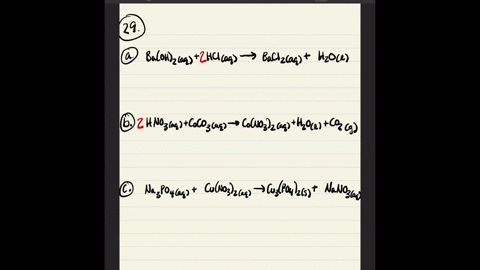 29.
a. Ba(OH)2(aq) + 2HCl(aq) → BaCl2(aq) + H2O(l)
b. 2 HNO3(aq) + CoCO3(aq) → Co(NO3)2(aq) + H2O(l) + CO2(g)
c. Na3PO4(aq) + Cu(NO3)2(aq) → Cu3(PO4)2(s) + NaNO3(aq)